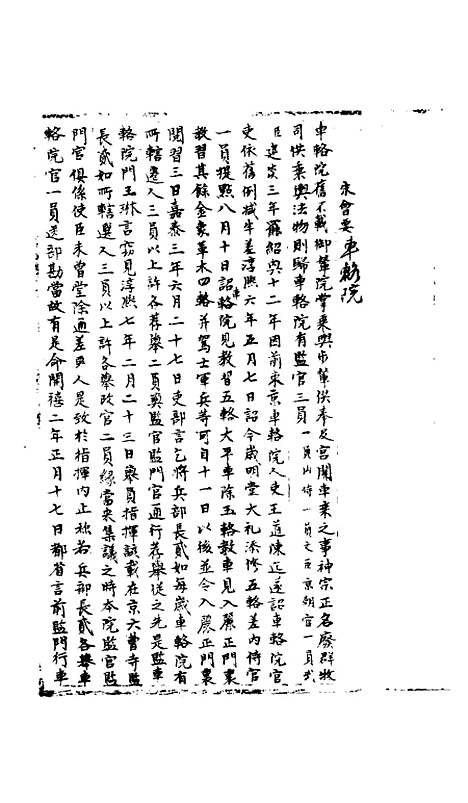 宋會要 車輅院
車輅院舊不載御輦院掌乘輿步輦供奉及宮闈車乘之事神宗正名廢群牧
司供乘輿法物則歸車輅院有監官三員一員內侍一員文臣京朝官一員武
臣建炎三年罷紹興十二年因前東京車輅院人吏王道陳廷遂詔車輅院官
吏依舊例減半差淳熙六年五月七日詔今歲明堂大礼添修五輅差內侍官
一員提點八月十日詔車輅院見教習五輅大平車除玉輅教車見入麗正門裏
教習其餘金象革木四輅并駕士軍兵等可自十一日以後並令入麗正門裏
閱習三日嘉泰三年六月二十七日吏部言乞將兵部長貳如每歲車輅院有
所轄選入三員以上許各荐舉二員與監官監門官通行荐舉從之先是監車
輅院門王琳言竊見淳熙七年二月二十三日衆員指揮該載在京六曹寺監
長貳如所轄選入三員以上許各舉改官二員緣當來集議之時本院監官監
門官俱係使臣未曾堂除通差京人是致於指揮內止稱若兵部長貳各舉車
輅院官一員送部勘當故有是命開禧二年正月十七日都省言前監門行車